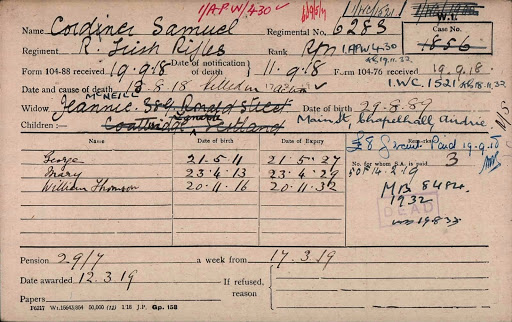 1/APW/430
Name Cordiner Samuel Regimental No. 6283 W.1.
Regiment R. Irish Rifles Rank Rfn 1.APW.430 Case No. 1856
Form 104-88 received 19.9.18 Date of notification of death 11.9.18 Form 104-76 received 19.9.18
Date and cause of death 13.8.18 Killed in action I.W.C. 1521
McNEILL
Widow Jeannie 389 Ronald Street Date of birth 29.8.89
Children:— Coatbridge Scotland Main St, Chapelhall, Airdrie
Name Date of birth Date of Expiry £8 Grant Paid 19.9.18
Remarks
No. for whom S.A. is paid 3
George 21.5.11 21.5.27
Mary 23.4.13 23.4.29
William Thomson 20.11.16 20.11.32
MB 8484
1932
DEAD
Pension 29/7 a week from 17.3.19
Date awarded 12.3.19 If refused, reason
Papers
1/18 J.P. Gp. 158